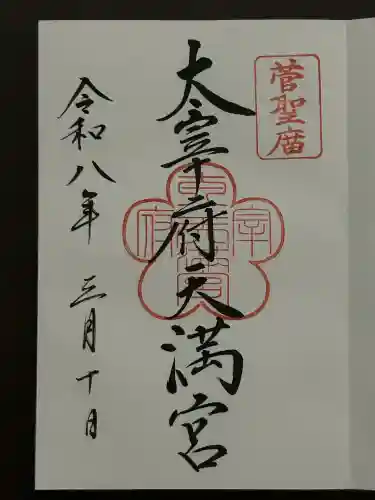 菅聖庿
太宰府天満宮
令和八年 三月十日